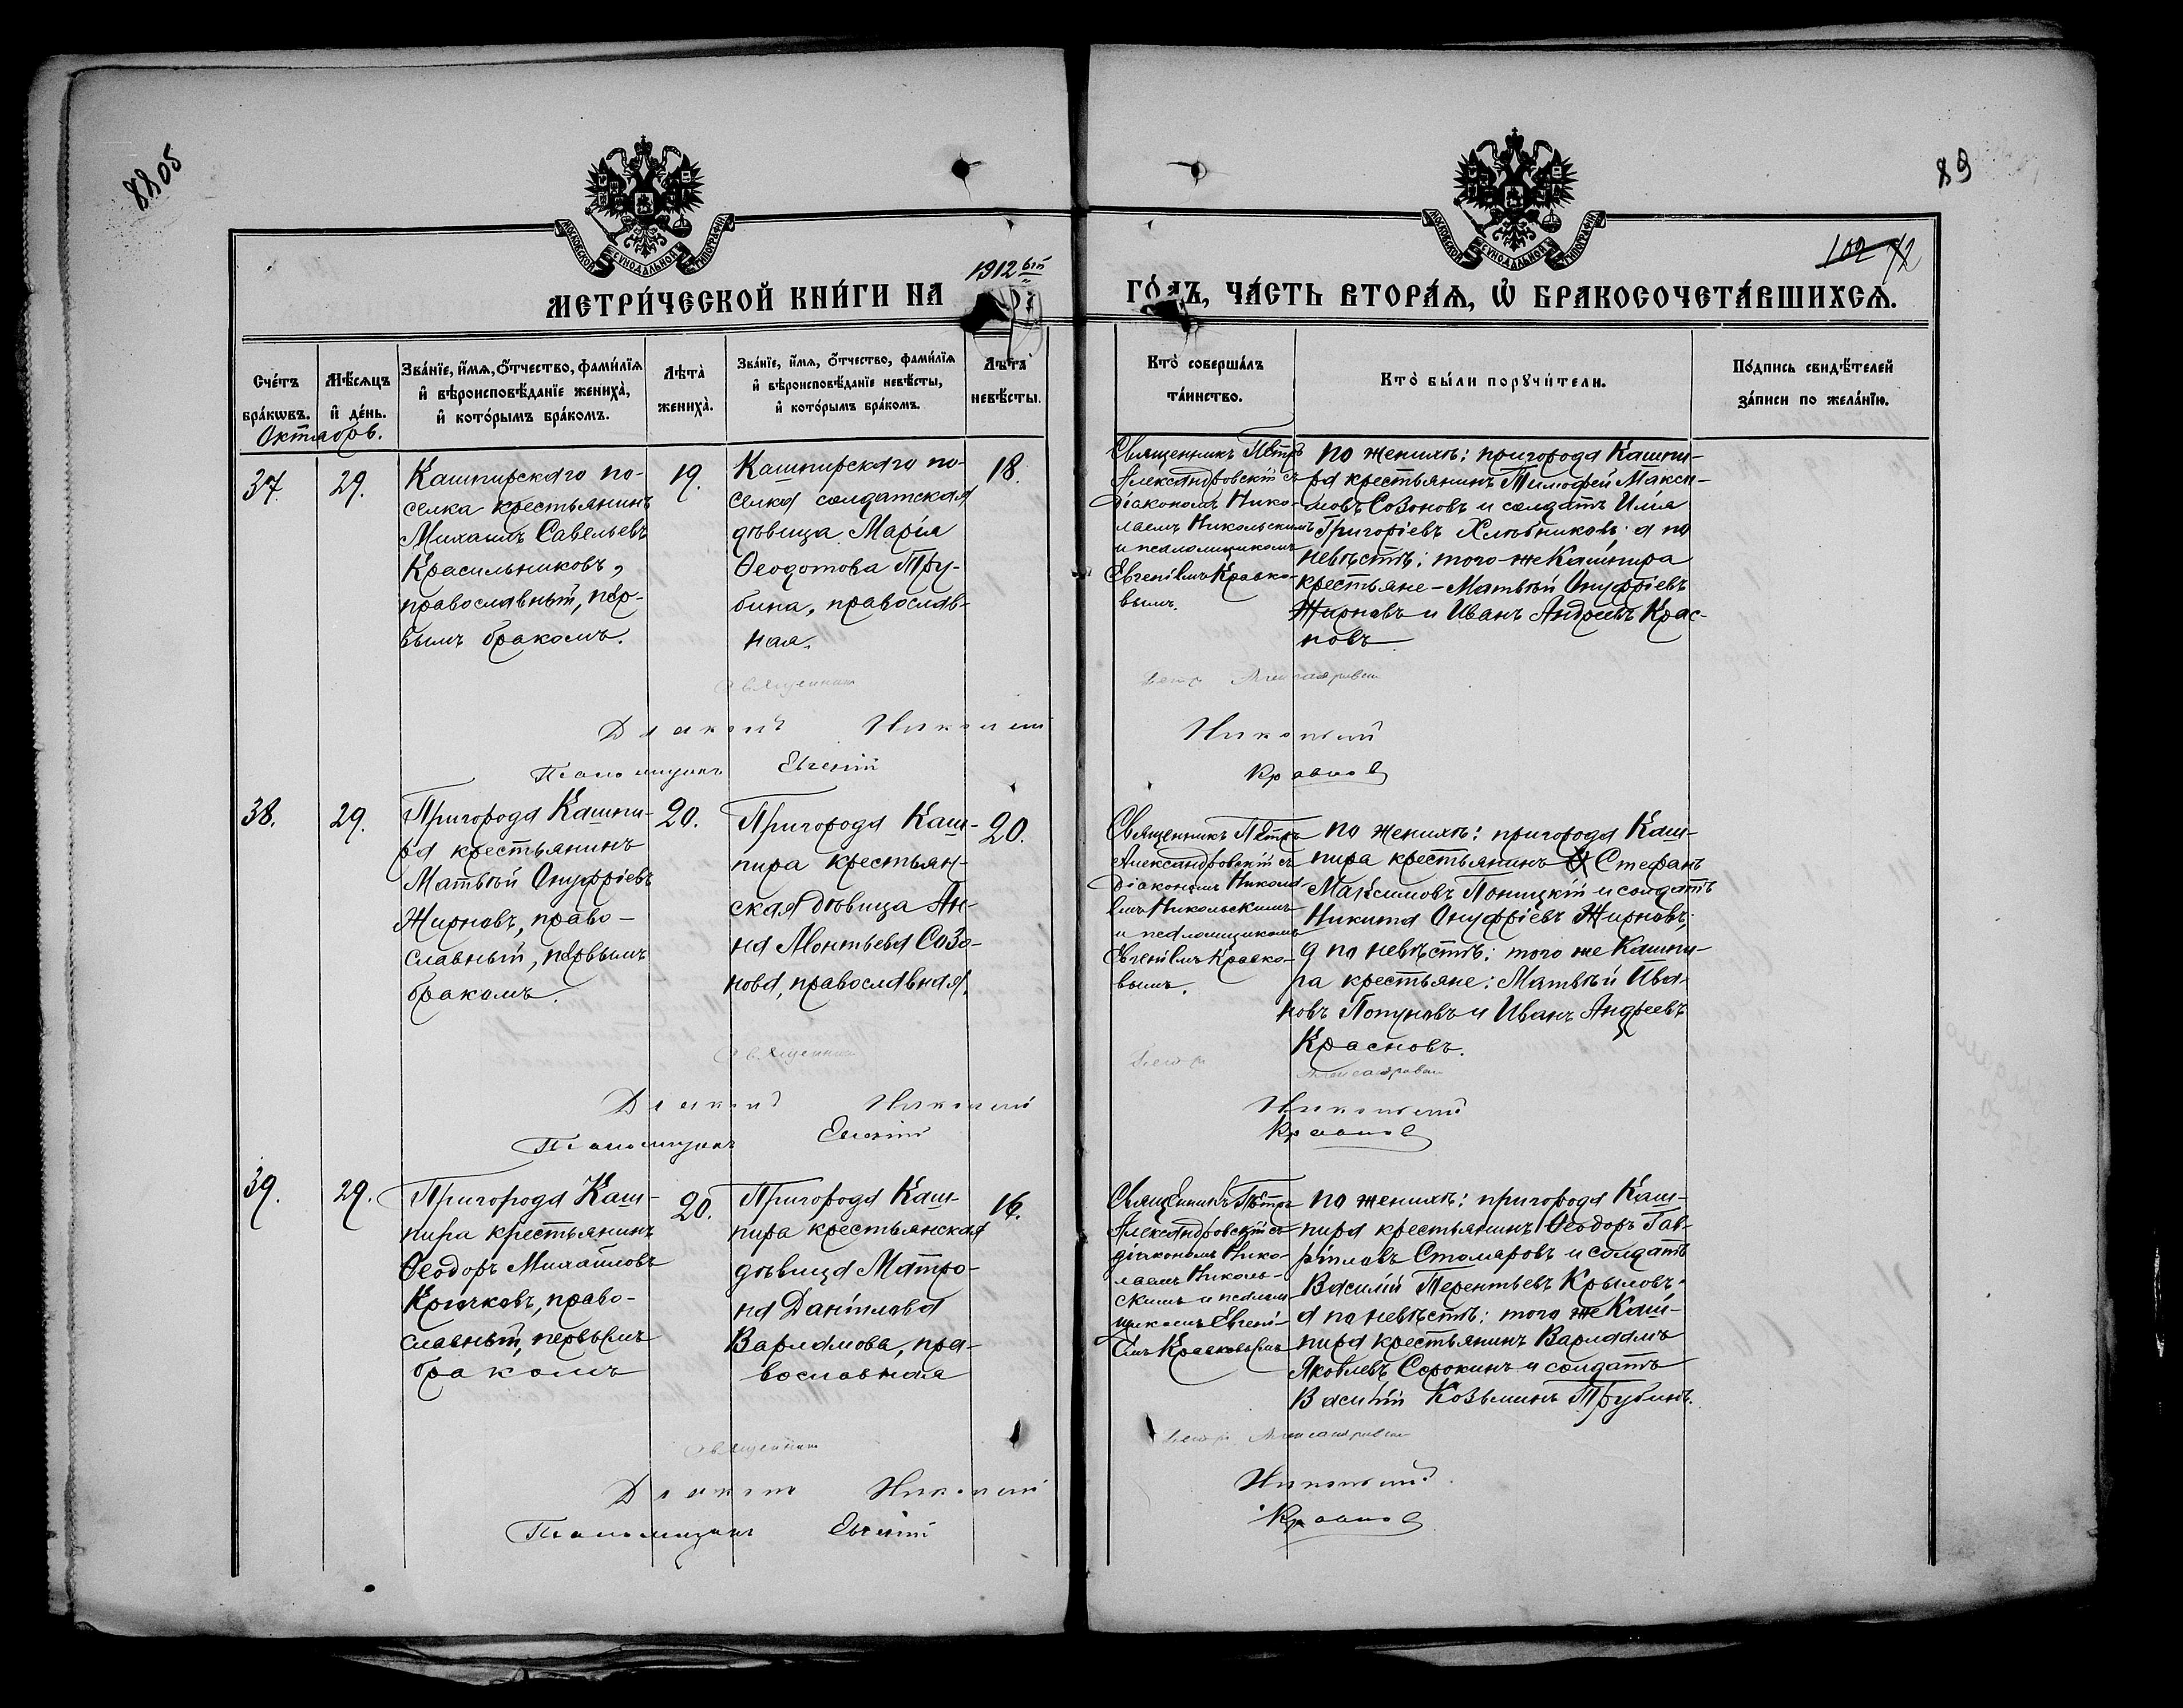 8805
89
МОСКОВСКОЙ СѴНОДАЛЬНОЙ ТИПОГРАФІИ
МОСКОВСКОЙ СѴНОДАЛЬНОЙ ТИПОГРАФІИ
102 72
1912 ый
МЕТРИ́ЧЕСКОЙ КНИ́ГИ НА
ГО́ДЪ, ЧА́СТЬ ВТОРА́Ѧ, Ѡ҆ БРАКОСОЧЕТА́ВШИХСѦ.
Сче́тъ бра́кѡвъ.
Мѣ́сяцъ и҆ де́нь.
Зва́нїе, и҆́мѧ, ѻ҆́тчество, фами́лїѧ
и҆ вѣроисповѣ́данїе жениха̀,
и҆ кото́рымъ бра́комъ.
Лѣта̀ жениха̀.
Зва́нїе, и҆́мѧ, ѻ҆́тчество, фами́лїѧ
и҆ вѣроисповѣ́данїе невѣ́сты,
и҆ кото́рымъ бра́комъ.
Лѣта̀ невѣ́сты.
Кто̀ соверша́лъ
та́инство.
Кто̀ бы́ли порꙋчи́тели.
По́дпись свидѣ́телей
за́писи по жела́нїю.
Октябрь.
37.
29.
Кашпирскаго по-
селка крестьянинъ
Михаилъ Савельевъ
Красильниковъ,
православный, пер-
вымъ бракомъ.
19.
Кашпирскаго по-
селка солдатская
дѣвица Марія
Ѳеодотова Тру-
бина, православ-
ная.
18.
Священникъ Петръ
Александровскій съ
діакономъ Нико-
лаемъ Никольскимъ
и псаломщикомъ
Евгеніемъ Кравко-
вымъ.
по женихѣ: пригорода Кашпи-
ра крестьянинъ Тимофей Макси-
мовъ Созоновъ и солдатъ Илія
Григоріевъ Хлѣбниковъ; а по
невѣстѣ: того-же Кашпира
крестьяне-Матвѣй Онуфріевъ
Жирновъ и Иванъ Андреевъ Крас-
новъ
Священникъ Петръ Александровскій
Діаконъ Николай Никольскій
Псаломщикъ Евгеній Кравковъ
38.
29.
Пригорода Кашпи-
ра крестьянинъ
Матвѣй Онуфріевъ
Жирновъ, право-
славный, первымъ
бракомъ.
20.
Пригорода Каш-
пира крестьян-
ская дѣвица Ан-
на Леонтьева Созо-
нова, православная.
20.
Священникъ Петръ
Александровскій съ
діакономъ Никола-
емъ Никольскимъ
и псаломщикомъ
Евгеніемъ Кравко-
вымъ.
по женихѣ: пригорода Каш-
пира крестьянинъ Стефанъ
Максимовъ Поницкій и солдатъ
Никита Онуфріевъ Жирновъ;
а по невѣстѣ: того же Кашпи-
ра крестьяне: Матвѣй Ива-
новъ Попуновъ и Иванъ Андреевъ
Красновъ.
Священникъ Петръ Александровскій
Діаконъ Николай Никольскій
Псаломщикъ Евгеній Кравковъ
39.
29.
Пригорода Каш-
пира крестьянинъ
Ѳеодоръ Михайловъ
Крючковъ, право-
славный, первымъ
бракомъ
20.
Пригорода Каш-
пира крестьянская
дѣвица Матро-
на Даніилова
Варламова, пра-
вославная
16.
Священникъ Петръ
Александровскій съ
діакономъ Нико-
лаемъ Николь-
скимъ и псалом-
щикомъ Евгені-
емъ Кравковымъ
по женихѣ: пригорода Каш-
пира крестьянинъ Ѳеодоръ Гав-
ріиловъ Столяровъ и солдатъ
Василій Терентьевъ Крыловъ-
а по невѣстѣ: того же Каш-
пира крестьянинъ Варлаамъ
Яковлевъ Сорокинъ и солдатъ
Василій Козьминъ Трубинъ.
Священникъ Петръ Александровскій
Діаконъ Николай Никольскій
Псаломщикъ Евгеній Кравковъ